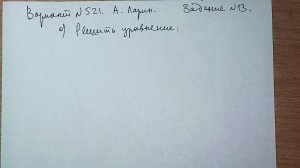 Вариант №521. А. Ларин. Задание №13.
а) Решить уравнение: